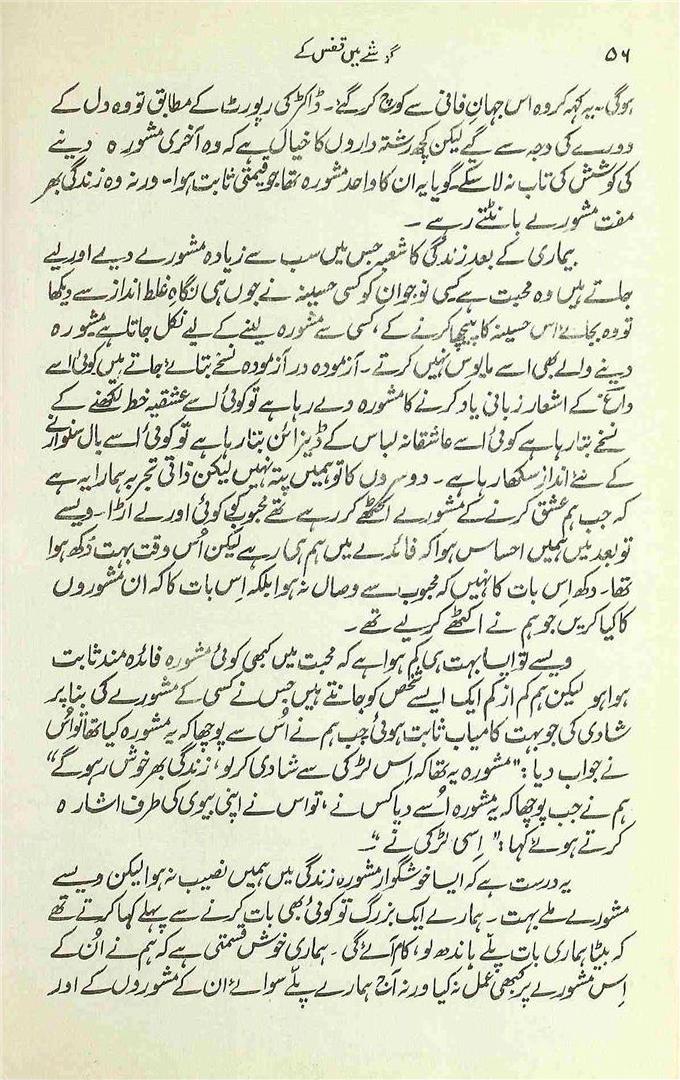 ۵۶
گوشے میں قفس کے
ہوگی۔ یہ کہہ کر وہ اس جہانِ فانی سے کوچ کر گئے۔ ڈاکٹر کی رپورٹ کے مطابق تو وہ دل کے
دورے کی وجہ سے گئے لیکن کچھ رشتہ داروں کا خیال ہے کہ وہ آخری مشورہ دینے
کی کوشش کی تاب نہ لا سکے۔ گویا یہ ان کا واحد مشورہ تھا جو قیمتی ثابت ہوا۔ ورنہ وہ زندگی بھر
مفت مشورے بانٹتے رہے۔
بیماری کے بعد زندگی کا شعبہ جس میں سب سے زیادہ مشورے دیے اور لیے
جاتے ہیں وہ محبت ہے کسی نوجوان کو کسی حسینہ نے جوں ہی نگاہِ غلط انداز سے دیکھا
تو وہ بجائے اس حسینہ کا پیچھا کرنے کے، کسی سے مشورہ لینے کے لیے نکل جاتا ہے مشورہ
دینے والے بھی اسے مایوس نہیں کرتے۔ آزمودہ در آزمودہ نسخے بتائے جاتے ہیں کوئی اُسے
داغ کے اشعار زبانی یاد کرنے کا مشورہ دے رہا ہے تو کوئی اُسے عشقیہ خط لکھنے کے
نسخے بتا رہا ہے کوئی اُسے عاشقانہ لباس کے ڈیزائن بتا رہا ہے تو کوئی اُسے بال سنوارنے
کے نئے انداز سکھا رہا ہے۔ دوسروں کا تو ہمیں پتہ نہیں لیکن ذاتی تجربہ ہمارا یہ ہے
کہ جب ہم عشق کرنے کے مشورے اکٹھے کر رہے تھے محبوب کو کوئی اور لے اڑا۔ ویسے
تو بعد میں ہمیں احساس ہوا کہ فائدے میں ہم ہی رہے لیکن اُس وقت بہت دُکھ ہوا
تھا۔ دکھ اِس بات کا نہیں کہ محبوب سے وصال نہ ہوا بلکہ اِس بات کا کہ ان مشوروں
کا کیا کریں جو ہم نے اکٹھے کر لیے تھے۔
ویسے تو ایسا بہت ہی کم ہوا ہے کہ محبت میں کبھی کوئی مشورہ فائدہ مند ثابت
ہوا ہو لیکن ہم کم از کم ایک ایسے شخص کو جانتے ہیں جس نے کسی کے مشورے کی بنا پر
شادی کی جو بہت کامیاب ثابت ہوئی جب ہم نے اُس سے پوچھا کہ یہ مشورہ کیا تھا تو اُس
نے جواب دیا: "مشورہ یہ تھا کہ اِس لڑکی سے شادی کر لو، زندگی بھر خوش رہو گے"
ہم نے جب پوچھا کہ یہ مشورہ اُسے دیا کس نے، تو اس نے اپنی بیوی کی طرف اشارہ
کرتے ہوئے کہا: "اِسی لڑکی نے"۔
یہ درست ہے کہ ایسا خوشگوار مشورہ زندگی میں ہمیں نصیب نہ ہوا لیکن ویسے
مشورے ملے بہت۔ ہمارے ایک بزرگ تو کوئی بھی بات کرنے سے پہلے کہا کرتے تھے
کہ بیٹا ہماری بات پلّے باندھ لو، کام آئے گی۔ ہماری خوش قسمتی ہے کہ ہم نے اُن کے
اِس مشورے پر کبھی عمل نہ کیا ورنہ آج ہمارے پلّے سوائے ان کے مشوروں کے اور